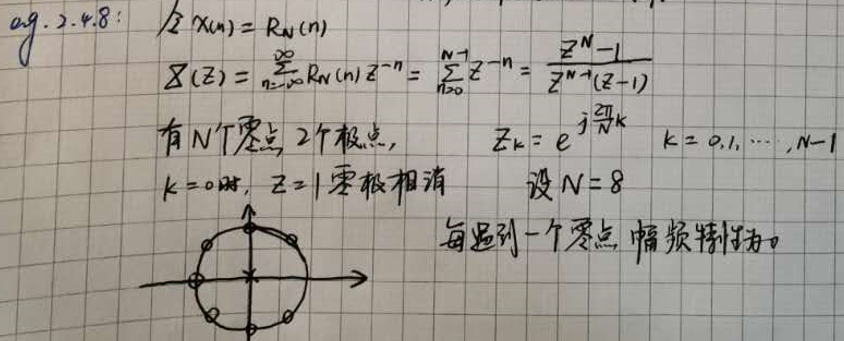 eg. 2.4.8: 令 x(n) = R_N(n)
X(Z) = \sum_{n=-\infty}^{\infty} R_N(n) Z^{-n} = \sum_{n=0}^{N-1} Z^{-n} = \frac{Z^N - 1}{Z^{N-1}(Z-1)}
有N个零点 2个极点, Z_k = e^{j\frac{2\pi}{N}k} k = 0,1,…,N-1
k=0时, Z=1零极相消 设 N=8
每遇到一个零点 幅频特性为0